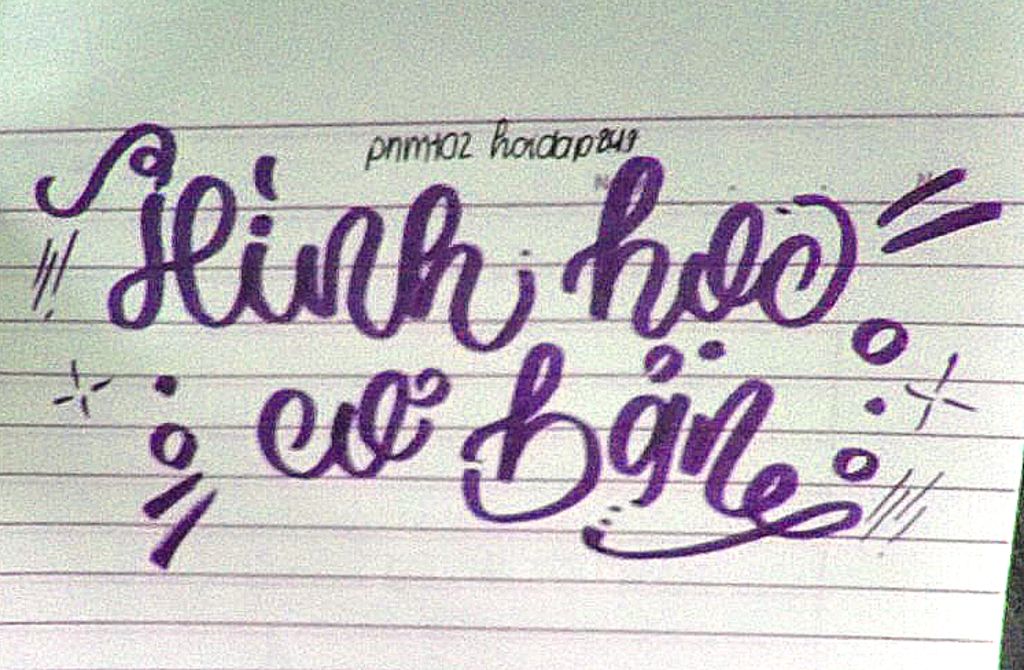 pnmt02 hoidap247
Hình học
cơ bản